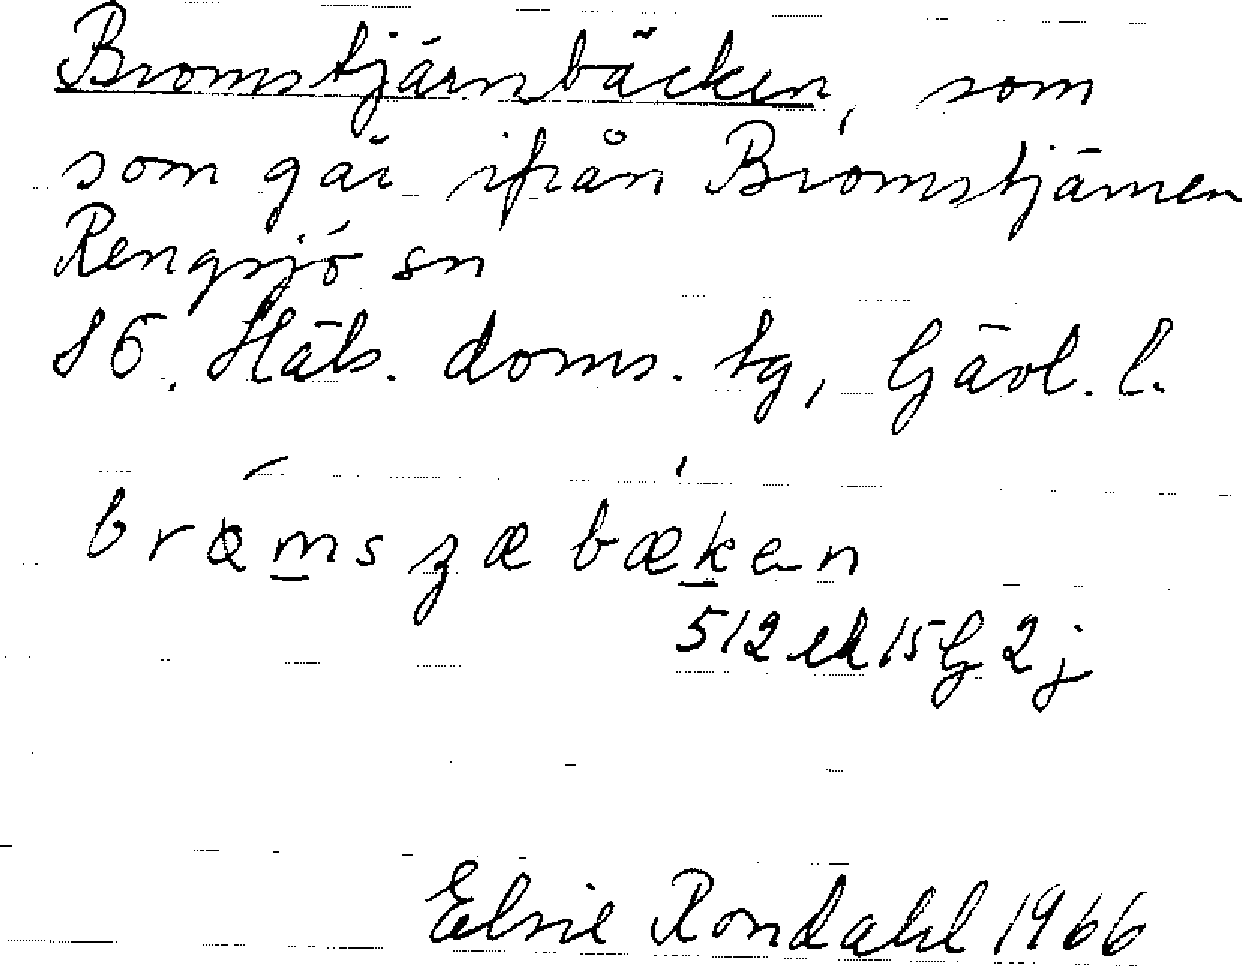 Bromstjärnbäcken, som
som går ifrån Bromstjärnen
Rengsjö sn
SÖ. Häls. doms. tg, Gävl. l.
bræmsʒæbækən
512 ek 15G 2j
Elsie Rondahl 1966